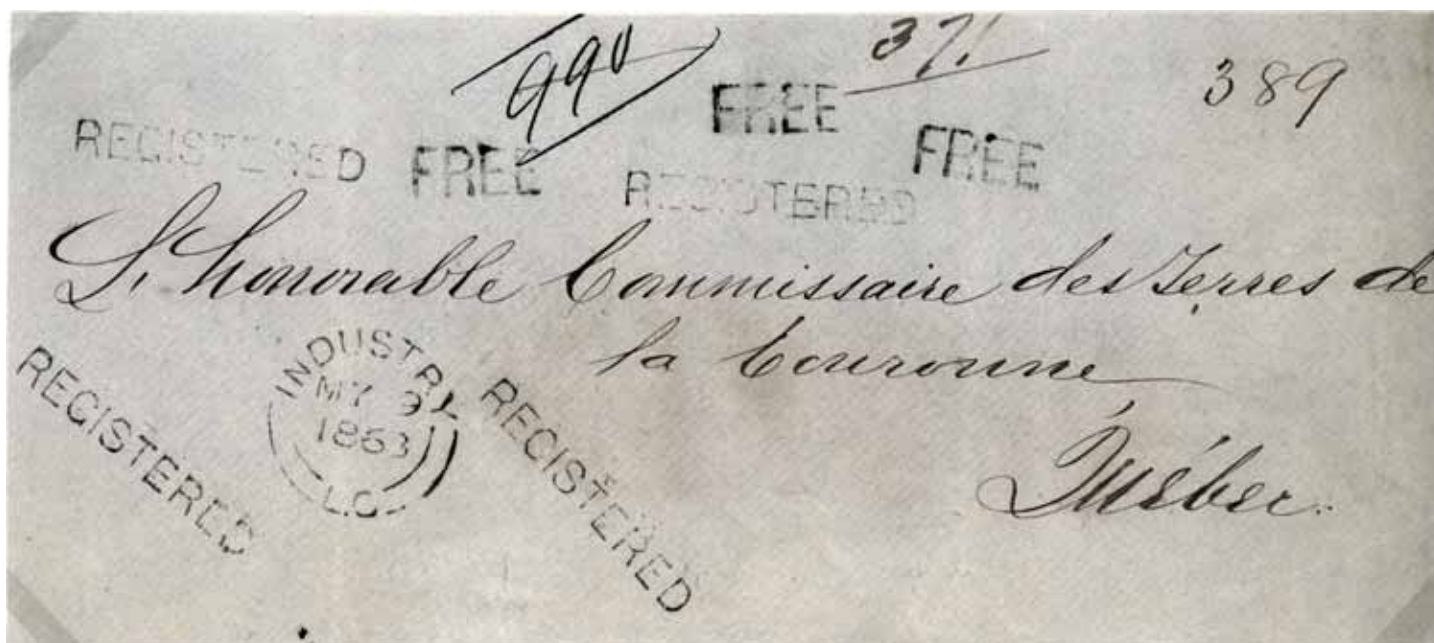 990 371 389
REGISTERED FREE FREE FREE
REGISTERED
L'honorable Commissaire des Terres de
la Couronne
Québec.
INDUSTRY
MY 9
1863
L.C.
REGISTERED
REGISTERED